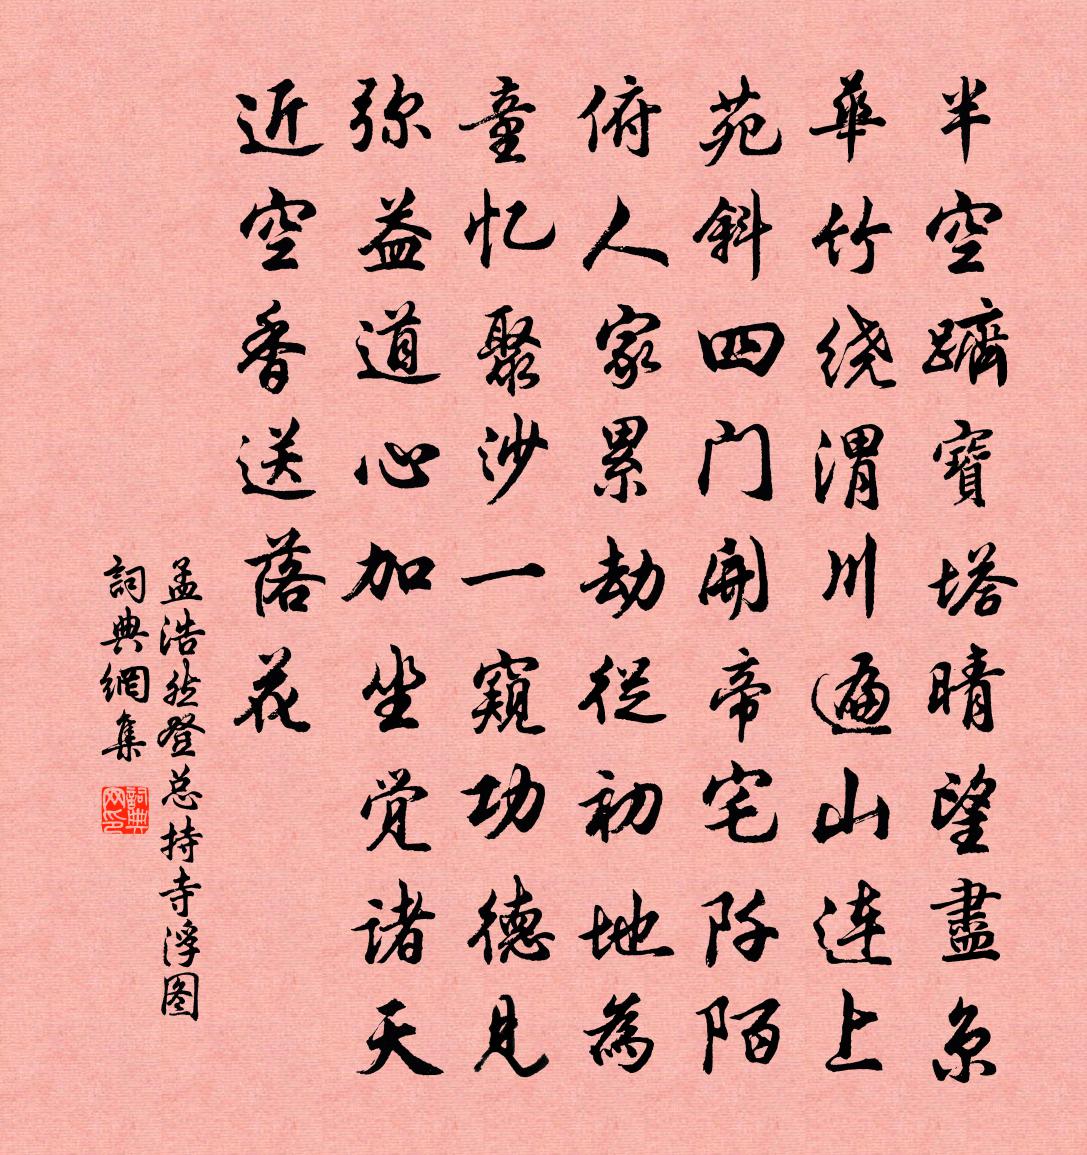 半空躋寶塔晴望盡京
華竹绕渭川遍山連上
苑斜四门開帝宅阡陌
俯人家累劫從初地為
童忆聚沙一窺功德見
弥益道心加坐觉諸天
近空香送落花
孟浩然登总持寺浮图
詞典網集
詞典网印